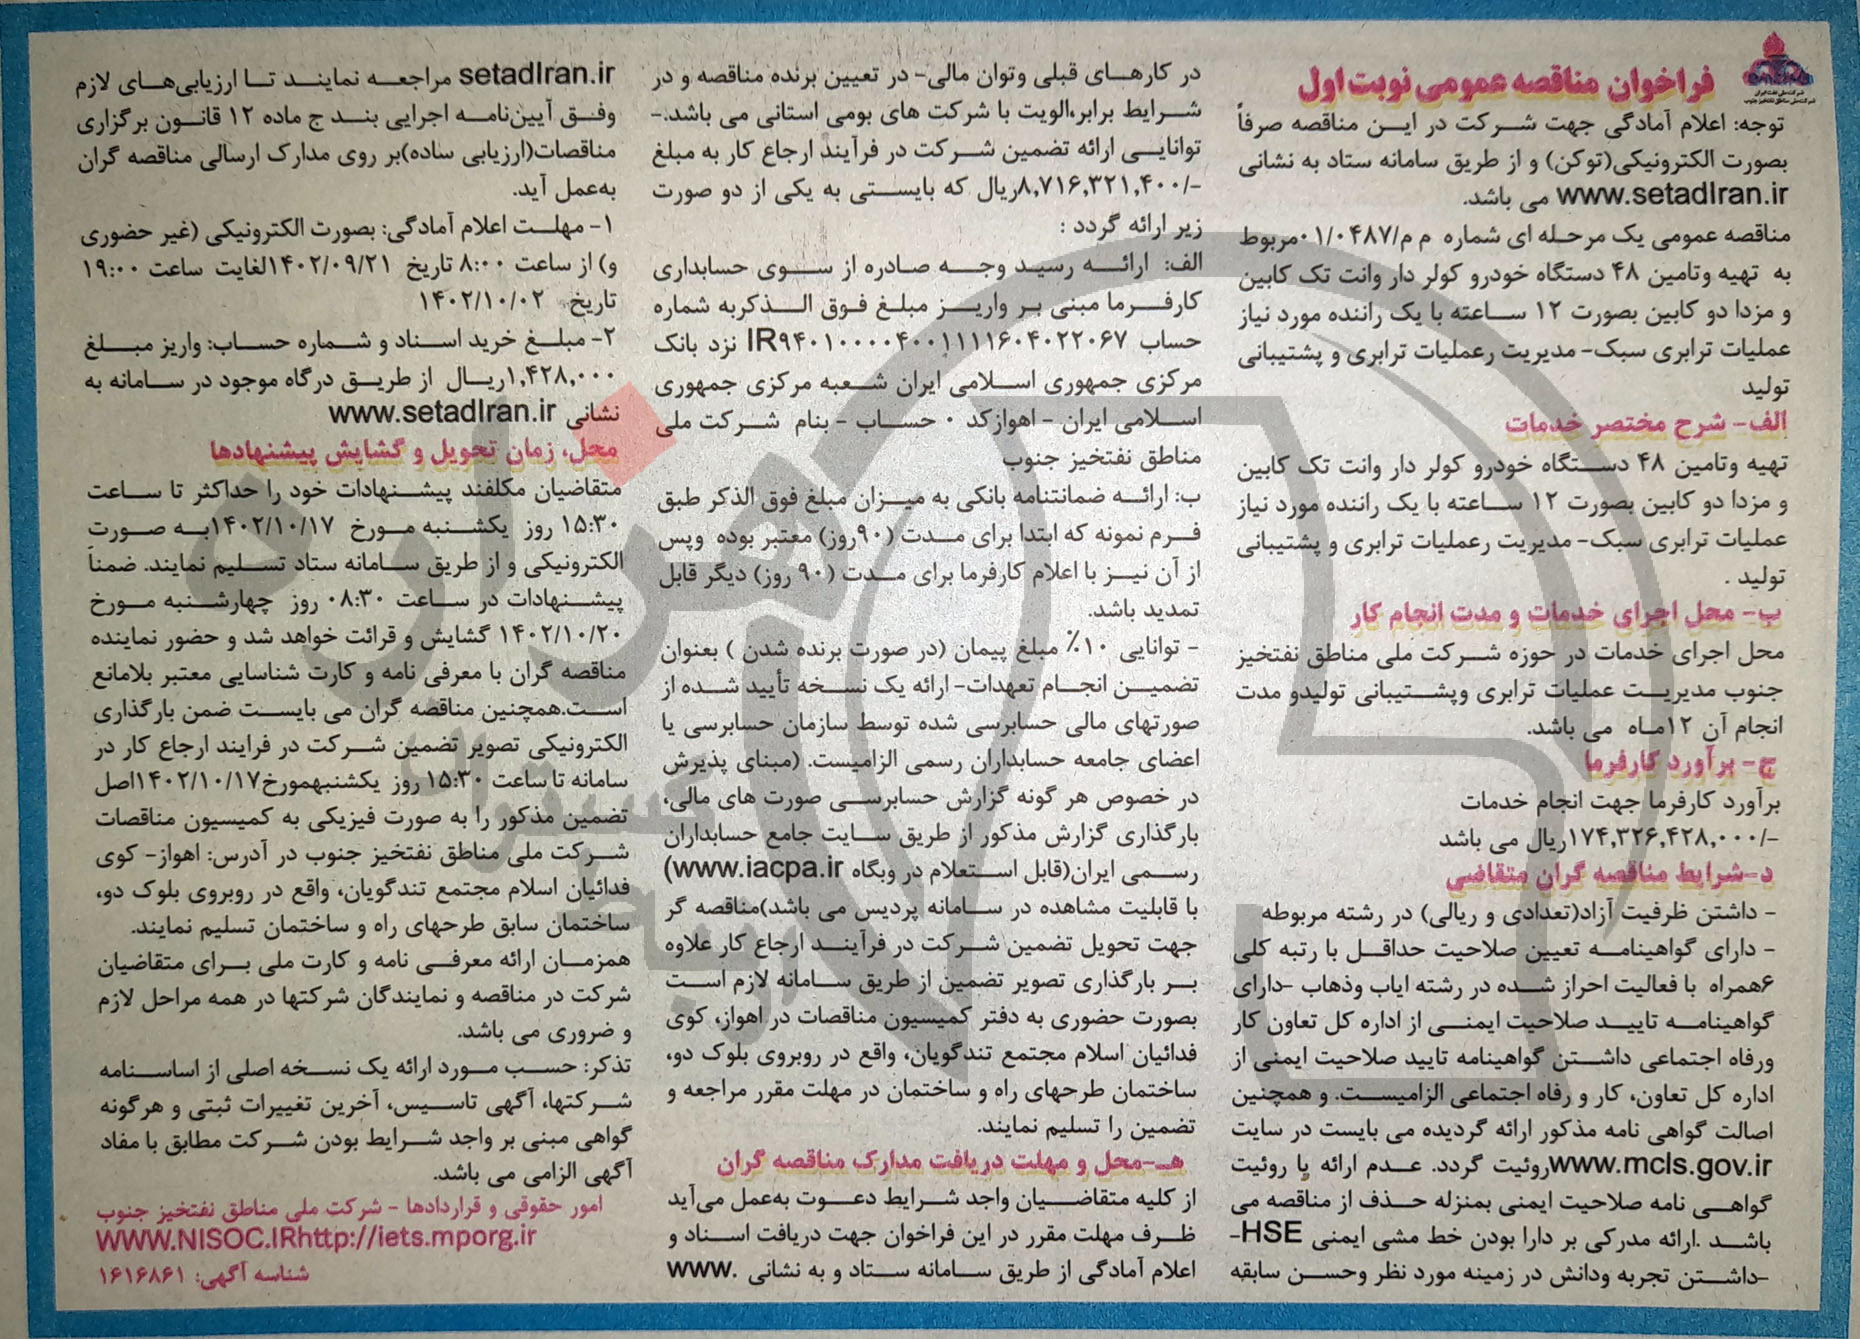 شرکت ملی نفت ایران
شرکت ملی مناطق نفتخیز جنوب
فراخوان مناقصه عمومی نوبت اول
توجه: اعلام آمادگی جهت شرکت در این مناقصه صرفاً
بصورت الکترونیکی(توکن) و از طریق سامانه ستاد به نشانی
www.setadIran.ir می باشد.
مناقصه عمومی یک مرحله ای شماره م م/۰۱/۰۴۸۷مربوط
به تهیه وتامین ۴۸ دستگاه خودرو کولر دار وانت تک کابین
و مزدا دو کابین بصورت ۱۲ ساعته با یک راننده مورد نیاز
عملیات ترابری سبک- مدیریت رعملیات ترابری و پشتیبانی
تولید
الف- شرح مختصر خدمات
تهیه وتامین ۴۸ دستگاه خودرو کولر دار وانت تک کابین
و مزدا دو کابین بصورت ۱۲ ساعته با یک راننده مورد نیاز
عملیات ترابری سبک- مدیریت رعملیات ترابری و پشتیبانی
تولید .
ب- محل اجرای خدمات و مدت انجام کار
محل اجرای خدمات در حوزه شرکت ملی مناطق نفتخیز
جنوب مدیریت عملیات ترابری وپشتیبانی تولیدو مدت
انجام آن ۱۲ماه می باشد.
ج- برآورد کارفرما
برآورد کارفرما جهت انجام خدمات
-/۱۷۴,۳۲۶,۴۲۸,۰۰۰ریال می باشد
د-شرایط مناقصه گران متقاضی
- داشتن ظرفیت آزاد(تعدادی و ریالی) در رشته مربوطه
- دارای گواهینامه تعیین صلاحیت حداقل با رتبه کلی
۶همراه با فعالیت احراز شده در رشته ایاب وذهاب -دارای
گواهینامه تایید صلاحیت ایمنی از اداره کل تعاون کار
ورفاه اجتماعی داشتن گواهینامه تایید صلاحیت ایمنی از
اداره کل تعاون، کار و رفاه اجتماعی الزامیست. و همچنین
اصالت گواهی نامه مذکور ارائه گردیده می بایست در سایت
www.mcls.gov.irروئیت گردد. عدم ارائه یا روئیت
گواهی نامه صلاحیت ایمنی بمنزله حذف از مناقصه می
باشد .ارائه مدرکی بر دارا بودن خط مشی ایمنی HSE-
-داشتن تجربه ودانش در زمینه مورد نظر وحسن سابقه
در کارهای قبلی وتوان مالی- در تعیین برنده مناقصه و در
شرایط برابر،الویت با شرکت های بومی استانی می باشد.-
توانایی ارائه تضمین شرکت در فرآیند ارجاع کار به مبلغ
-/۸,۷۱۶,۳۲۱,۴۰۰ریال که بایستی به یکی از دو صورت
زیر ارائه گردد :
الف: ارائه رسید وجه صادره از سوی حسابداری
کارفرما مبنی بر واریز مبلغ فوق الذکربه شماره
حساب IR۹۴۰۱۰۰۰۰۴۰۰۱۱۱۱۶۰۴۰۲۲۰۶۷ نزد بانک
مرکزی جمهوری اسلامی ایران شعبه مرکزی جمهوری
اسلامی ایران - اهوازکد ۰ حساب - بنام شرکت ملی
مناطق نفتخیز جنوب
ب: ارائه ضمانتنامه بانکی به میزان مبلغ فوق الذکر طبق
فرم نمونه که ابتدا برای مدت (۹۰روز) معتبر بوده وپس
از آن نیز با اعلام کارفرما برای مدت (۹۰ روز) دیگر قابل
تمدید باشد.
- توانایی ۱۰٪ مبلغ پیمان (در صورت برنده شدن ) بعنوان
تضمین انجام تعهدات- ارائه یک نسخه تأیید شده از
صورتهای مالی حسابرسی شده توسط سازمان حسابرسی یا
اعضای جامعه حسابداران رسمی الزامیست. (مبنای پذیرش
در خصوص هر گونه گزارش حسابرسی صورت های مالی،
بارگذاری گزارش مذکور از طریق سایت جامع حسابداران
رسمی ایران(قابل استعلام در وبگاه www.iacpa.ir)
با قابلیت مشاهده در سامانه پردیس می باشد)مناقصه گر
جهت تحویل تضمین شرکت در فرآیند ارجاع کار علاوه
بر بارگذاری تصویر تضمین از طریق سامانه لازم است
بصورت حضوری به دفتر کمیسیون مناقصات در اهواز، کوی
فدائیان اسلام مجتمع تندگویان، واقع در روبروی بلوک دو،
ساختمان طرحهای راه و ساختمان در مهلت مقرر مراجعه و
تضمین را تسلیم نمایند.
هـ-محل و مهلت دریافت مدارک مناقصه گران
از کلیه متقاضیان واجد شرایط دعوت به‌عمل می‌آید
ظرف مهلت مقرر در این فراخوان جهت دریافت اسناد و
اعلام آمادگی از طریق سامانه ستاد و به نشانی www.
setadIran.ir مراجعه نمایند تا ارزیابی‌های لازم
وفق آیین‌نامه اجرایی بند ج ماده ۱۲ قانون برگزاری
مناقصات(ارزیابی ساده)بر روی مدارک ارسالی مناقصه گران
به‌عمل آید.
۱- مهلت اعلام آمادگی: بصورت الکترونیکی (غیر حضوری
و) از ساعت ۸:۰۰ تاریخ ۱۴۰۲/۰۹/۲۱لغایت ساعت ۱۹:۰۰
تاریخ ۱۴۰۲/۱۰/۰۲
۲- مبلغ خرید اسناد و شماره حساب: واریز مبلغ
۱,۴۲۸,۰۰۰ریال از طریق درگاه موجود در سامانه به
نشانی www.setadIran.ir
محل، زمان تحویل و گشایش پیشنهادها
متقاضیان مکلفند پیشنهادات خود را حداکثر تا ساعت
۱۵:۳۰ روز یکشنبه مورخ ۱۴۰۲/۱۰/۱۷به صورت
الکترونیکی و از طریق سامانه ستاد تسلیم نمایند. ضمناً
پیشنهادات در ساعت ۰۸:۳۰ روز چهارشنبه مورخ
۱۴۰۲/۱۰/۲۰ گشایش و قرائت خواهد شد و حضور نماینده
مناقصه گران با معرفی نامه و کارت شناسایی معتبر بلامانع
است.همچنین مناقصه گران می بایست ضمن بارگذاری
الکترونیکی تصویر تضمین شرکت در فرایند ارجاع کار در
سامانه تا ساعت ۱۵:۳۰ روز یکشنبهمورخ۱۴۰۲/۱۰/۱۷اصل
تضمین مذکور را به صورت فیزیکی به کمیسیون مناقصات
شرکت ملی مناطق نفتخیز جنوب در آدرس: اهواز- کوی
فدائیان اسلام مجتمع تندگویان، واقع در روبروی بلوک دو،
ساختمان سابق طرحهای راه و ساختمان تسلیم نمایند.
همزمان ارائه معرفی نامه و کارت ملی برای متقاضیان
شرکت در مناقصه و نمایندگان شرکتها در همه مراحل لازم
و ضروری می باشد.
تذکر: حسب مورد ارائه یک نسخه اصلی از اساسنامه
شرکتها، آگهی تاسیس، آخرین تغییرات ثبتی و هرگونه
گواهی مبنی بر واجد شرایط بودن شرکت مطابق با مفاد
آگهی الزامی می باشد.
امور حقوقی و قراردادها - شرکت ملی مناطق نفتخیز جنوب
WWW.NISOC.IRhttp://iets.mporg.ir
شناسه آگهی: ۱۶۱۶۸۶۱